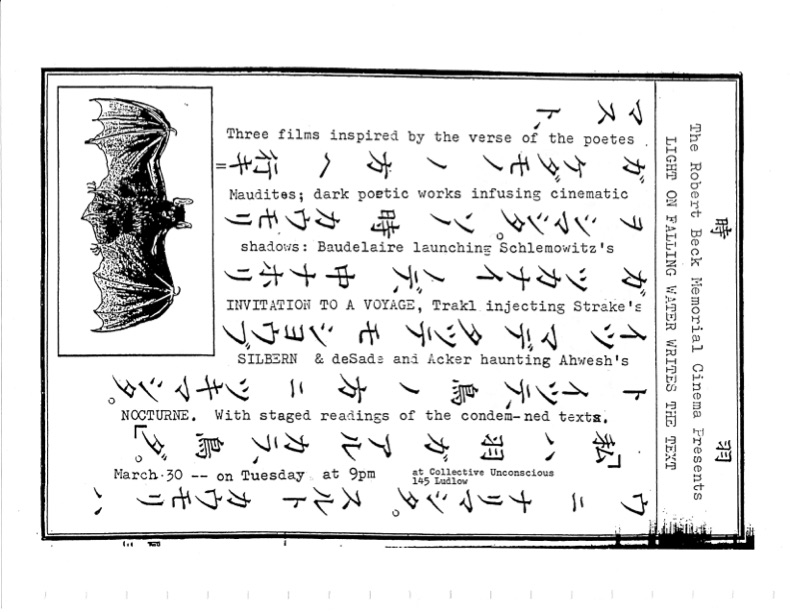 The Robert Beck Memorial Cinema Presents
LIGHT ON FALLING WATER WRITES THE TEXT
時
羽
マスト、
Three films inspired by the verse of the poetes
ガケダモノノ方ヘ行キ=
Maudites; dark poetic works infusing cinematic
ヲシマシタ。ソノ時カウモリ
shadows: Baudelaire launching Schlemowitz's
ガツカナイノデ、中ナホリ
INVITATION TO A VOYAGE, Trakl injecting Strake's
イツマデタツテモショウブ
SILBERN & deSade and Acker haunting Ahwesh's
トイツテ、鳥ノ方ニツキマシタ。
NOCTURNE. With staged readings of the condem-ned texts.
「私ハ羽ガアルカラ、鳥ダ」
March 30 -- on Tuesday at 9pm
at Collective Unconscious
145 Ludlow
ウニナリマシタ。スルトカウモリハ、